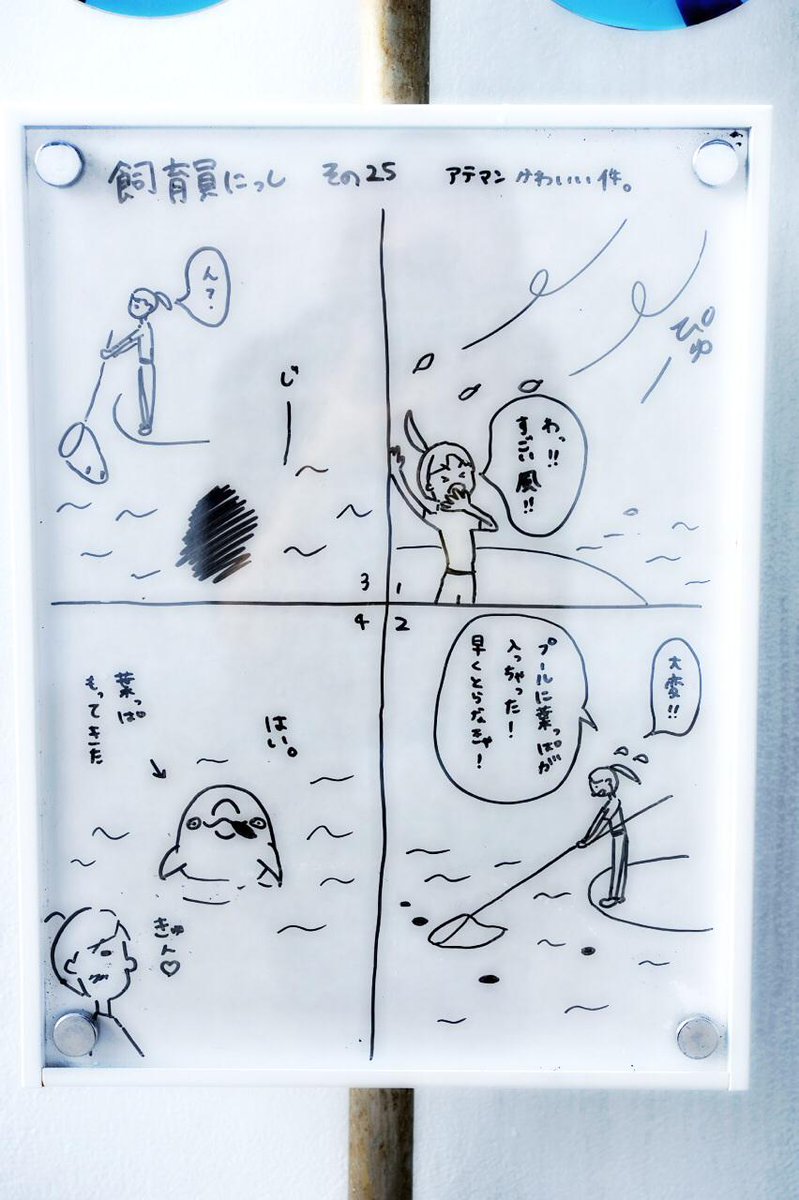 飼育員にっし その25 アテマンかわいい件。
1
ぴゅー
わっ!!
すごい風!!
2
大変!!
プールに葉っぱが
入っちゃった!
早くとらなきゃ!
3
ん?
じー
4
はい。
葉っぱ
もってきた
きゅん♡